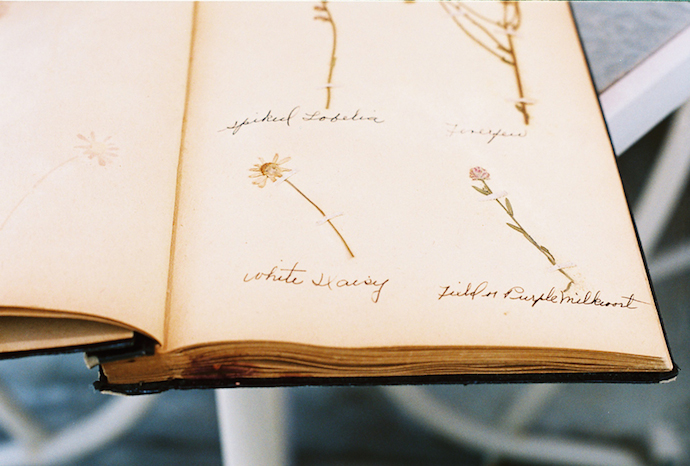 spiked Lobelia
White Daisy
Field or Purple Milkwort